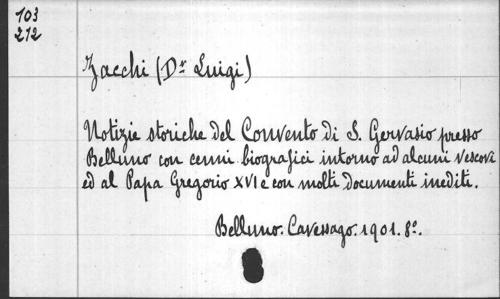 103
212
Zacchi (Dr Luigi)
Notizie storiche del Convento di S. Gervasio presso
Belluno con cenni biografici intorno ad alcuni vescovi
ed al Papa Gregorio XVI e con molti documenti inediti.
Belluno. Cavessago. 1901. 8º.